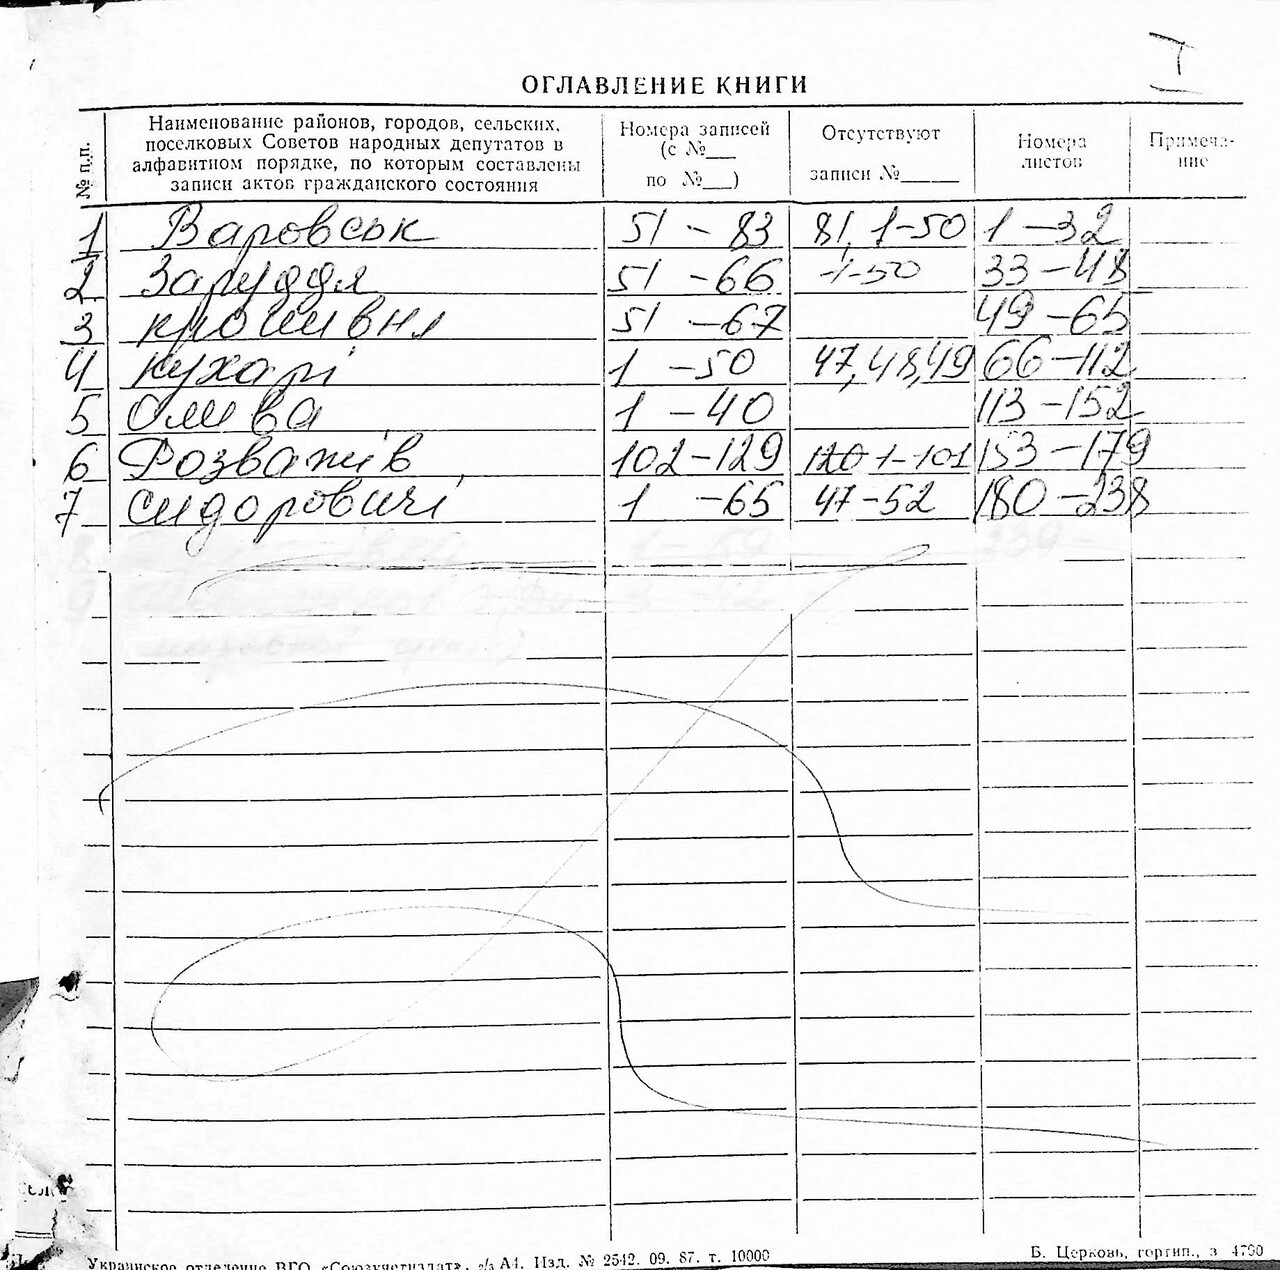 I
ОГЛАВЛЕНИЕ КНИГИ
№ п.п.
Наименование районов, городов, сельских,
поселковых Советов народных депутатов в
алфавитном порядке, по которым составлены
записи актов гражданского состояния
Номера записей
(с №__
по №__)
Отсутствуют
записи №_____
Номера
листов
Примеча-
ние
1 Варовськ 51 - 83 81, 1-50 1 - 32
2 Заруддя 51 - 66 1-50 33 - 48
3 кропивня 51 - 67 49 - 65
4 кухарі 1 - 50 47, 48, 49 66 - 112
5 Олива 1 - 40 113 - 152
6 Розважів 102 - 129 120 1-101 153 - 179
7 сидоровичі 1 - 65 47 - 52 180 - 238
8 1 - 59 239 -
9
Украинское отделение ВГО «Союзучетиздат», з/з А4. Изд. № 2542. 09. 87. т. 10000
Б. Церковь, гортип., з 4790